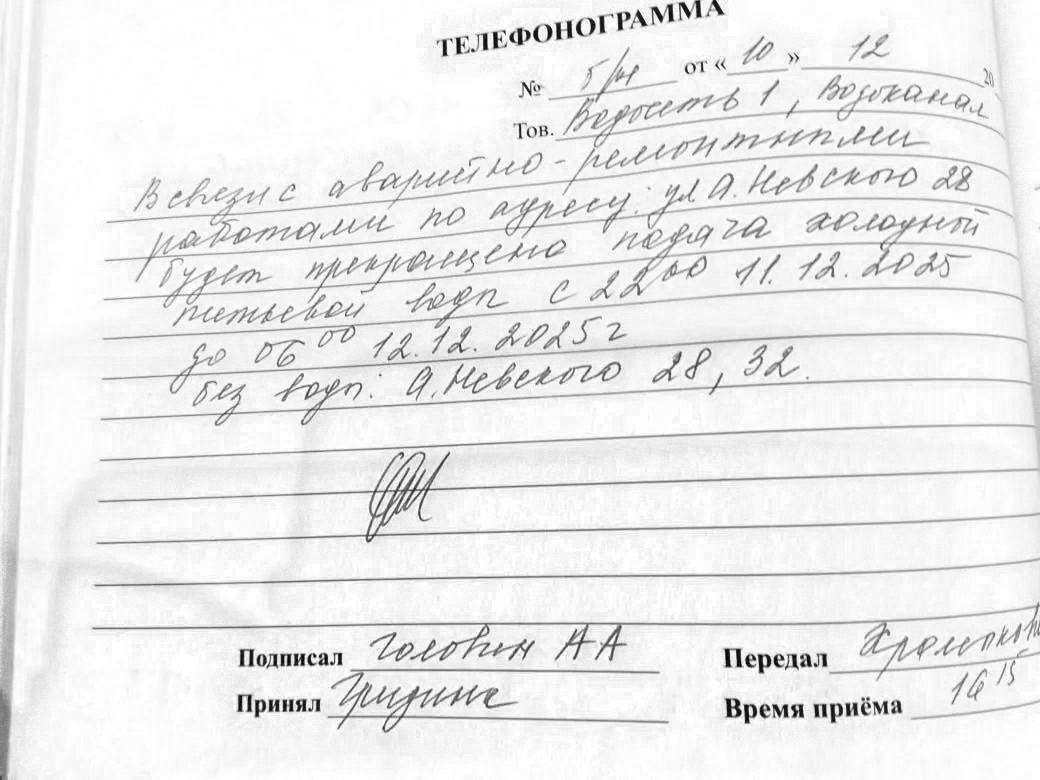 ТЕЛЕФОНОГРАММА
№ б/н от « 10 » 12 20
Тов. Водосеть 1, Водоканал
В связи с аварийно-ремонтными
работами по адресу: ул А.Невского 28
будет прекращена подача холодной
питьевой воды с 22 00 11.12.2025
до 06 00 12.12.2025г
без воды: А.Невского 28, 32.
Подписал Головин АА Передал
Принял Время приёма 16 15